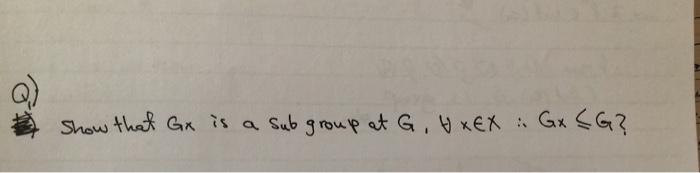 Q)
Show that Gx is a sub group at G, ∀ x∈X ∴ Gx ≤ G?